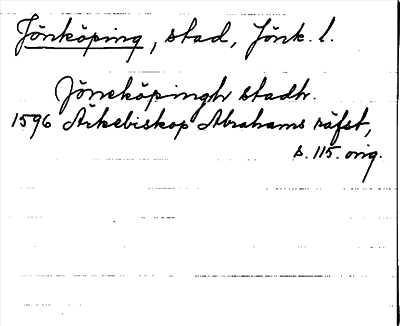 Jönköping, stad, Jönk. l.
Jöneköpingh stadh.
1596 Ärkebiskop Abrahams räfst,
s. 115. orig.